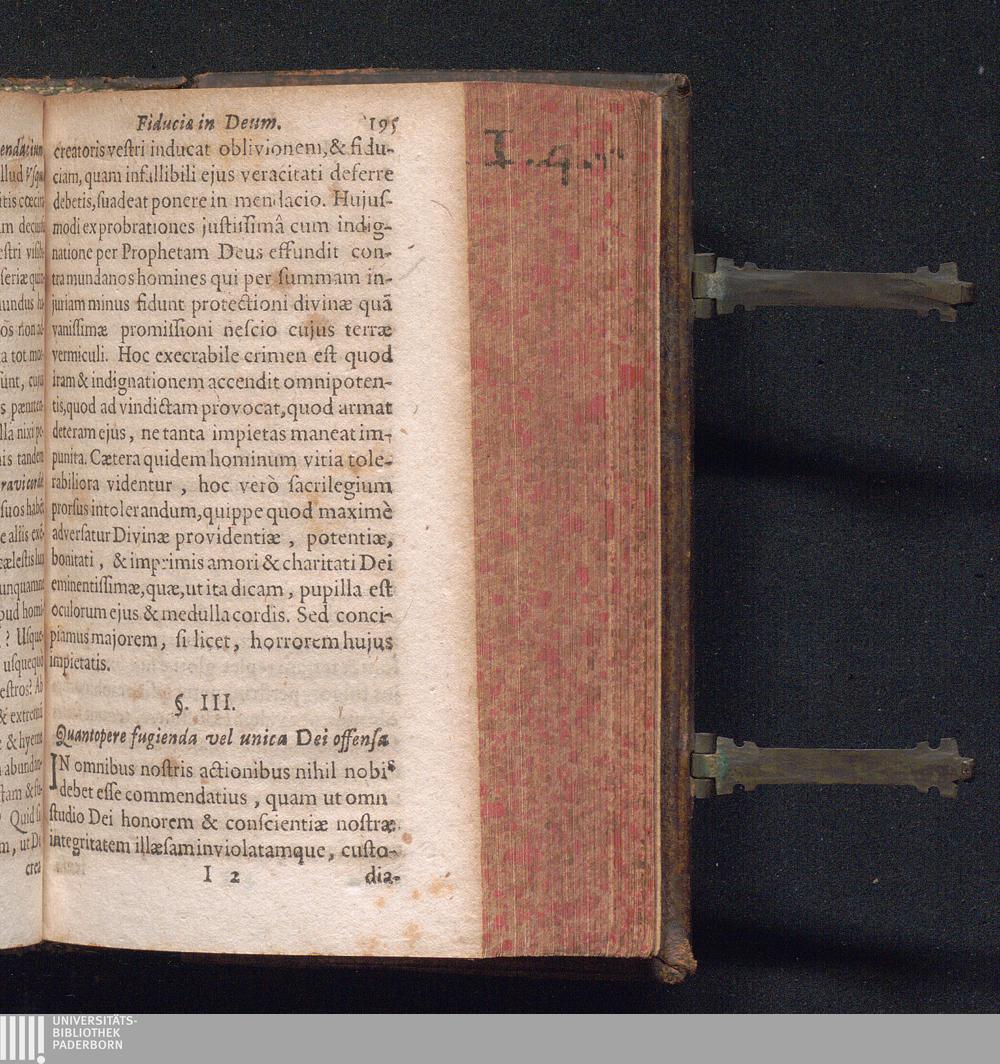 Fiducia in Deum. 195
creatoris vestri inducat oblivionem, & fidu-
ciam, quam infallibili ejus veracitati deferre
debetis, suadeat ponere in mendacio. Hujuſ-
modi exprobrationes juſtiſſimâ cum indig-
natione per Prophetam Deus effundit con-
tra mundanos homines qui per ſummam in-
juriam minus fidunt protectioni divinæ quã
vaniſſimæ promiſſioni neſcio cujus terræ
vermiculi. Hoc execrabile crimen eſt quod
iram & indignationem accendit omnipoten-
tis, quod ad vindictam provocat, quod armat
deteram ejus, ne tanta impietas maneat im-
punita. Cætera quidem hominum vitia tole-
rabiliora videntur, hoc verò ſacrilegium
prorſus intolerandum, quippe quod maximè
adverſatur Divinæ providentiæ, potentiæ,
bonitati, & imprimis amori & charitati Dei
eminentiſſimæ, quæ, ut ita dicam, pupilla eſt
oculorum ejus & medulla cordis. Sed conci-
piamus majorem, ſi licet, horrorem hujus
impietatis.
§. III.
Quantopere fugienda vel unica Dei offenſa
IN omnibus noſtris actionibus nihil nobis
debet eſſe commendatius, quam ut omni
ſtudio Dei honorem & conſcientiæ noſtræ
integritatem illæſam inviolatamque, cuſto-
I 2 dia-
UNIVERSITÄTS-
BIBLIOTHEK
PADERBORN